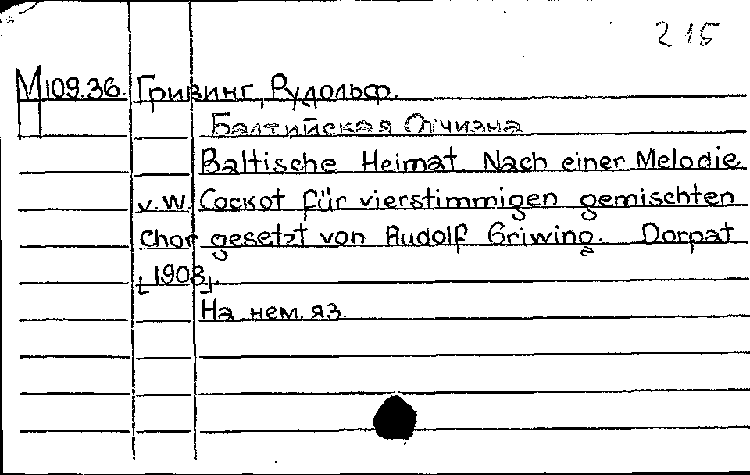 215
М 109.36. Гривинг, Рудольф.
Балтийская Отчизна
Baltische Heimat Nach einer Melodie
v. W. Cockot für vierstimmigen gemischten
Chor gesetzt von Rudolf Griwing. Dorpat
[1903].
На нем. яз.